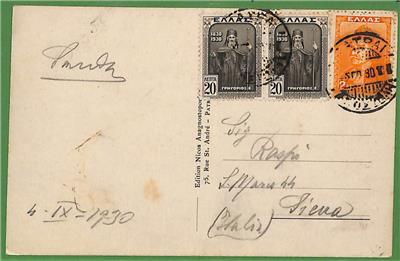 ΕΛΛΑΣ
1830
1930
ΛΕΠΤΑ
20
ΓΡΗΓΟΡΙΟΣ Ε
ΕΛΛΑΣ
1830
1930
20
ΓΡΗΓΟΡΙΟΣ Ε
ΕΛΛΑΣ
Edition Nicos Anagnostopoulos
75, Rue St. André - Patras
Sig
Raspi
S. Marco 44
Siena
(Italia)
4 - IX = 1930